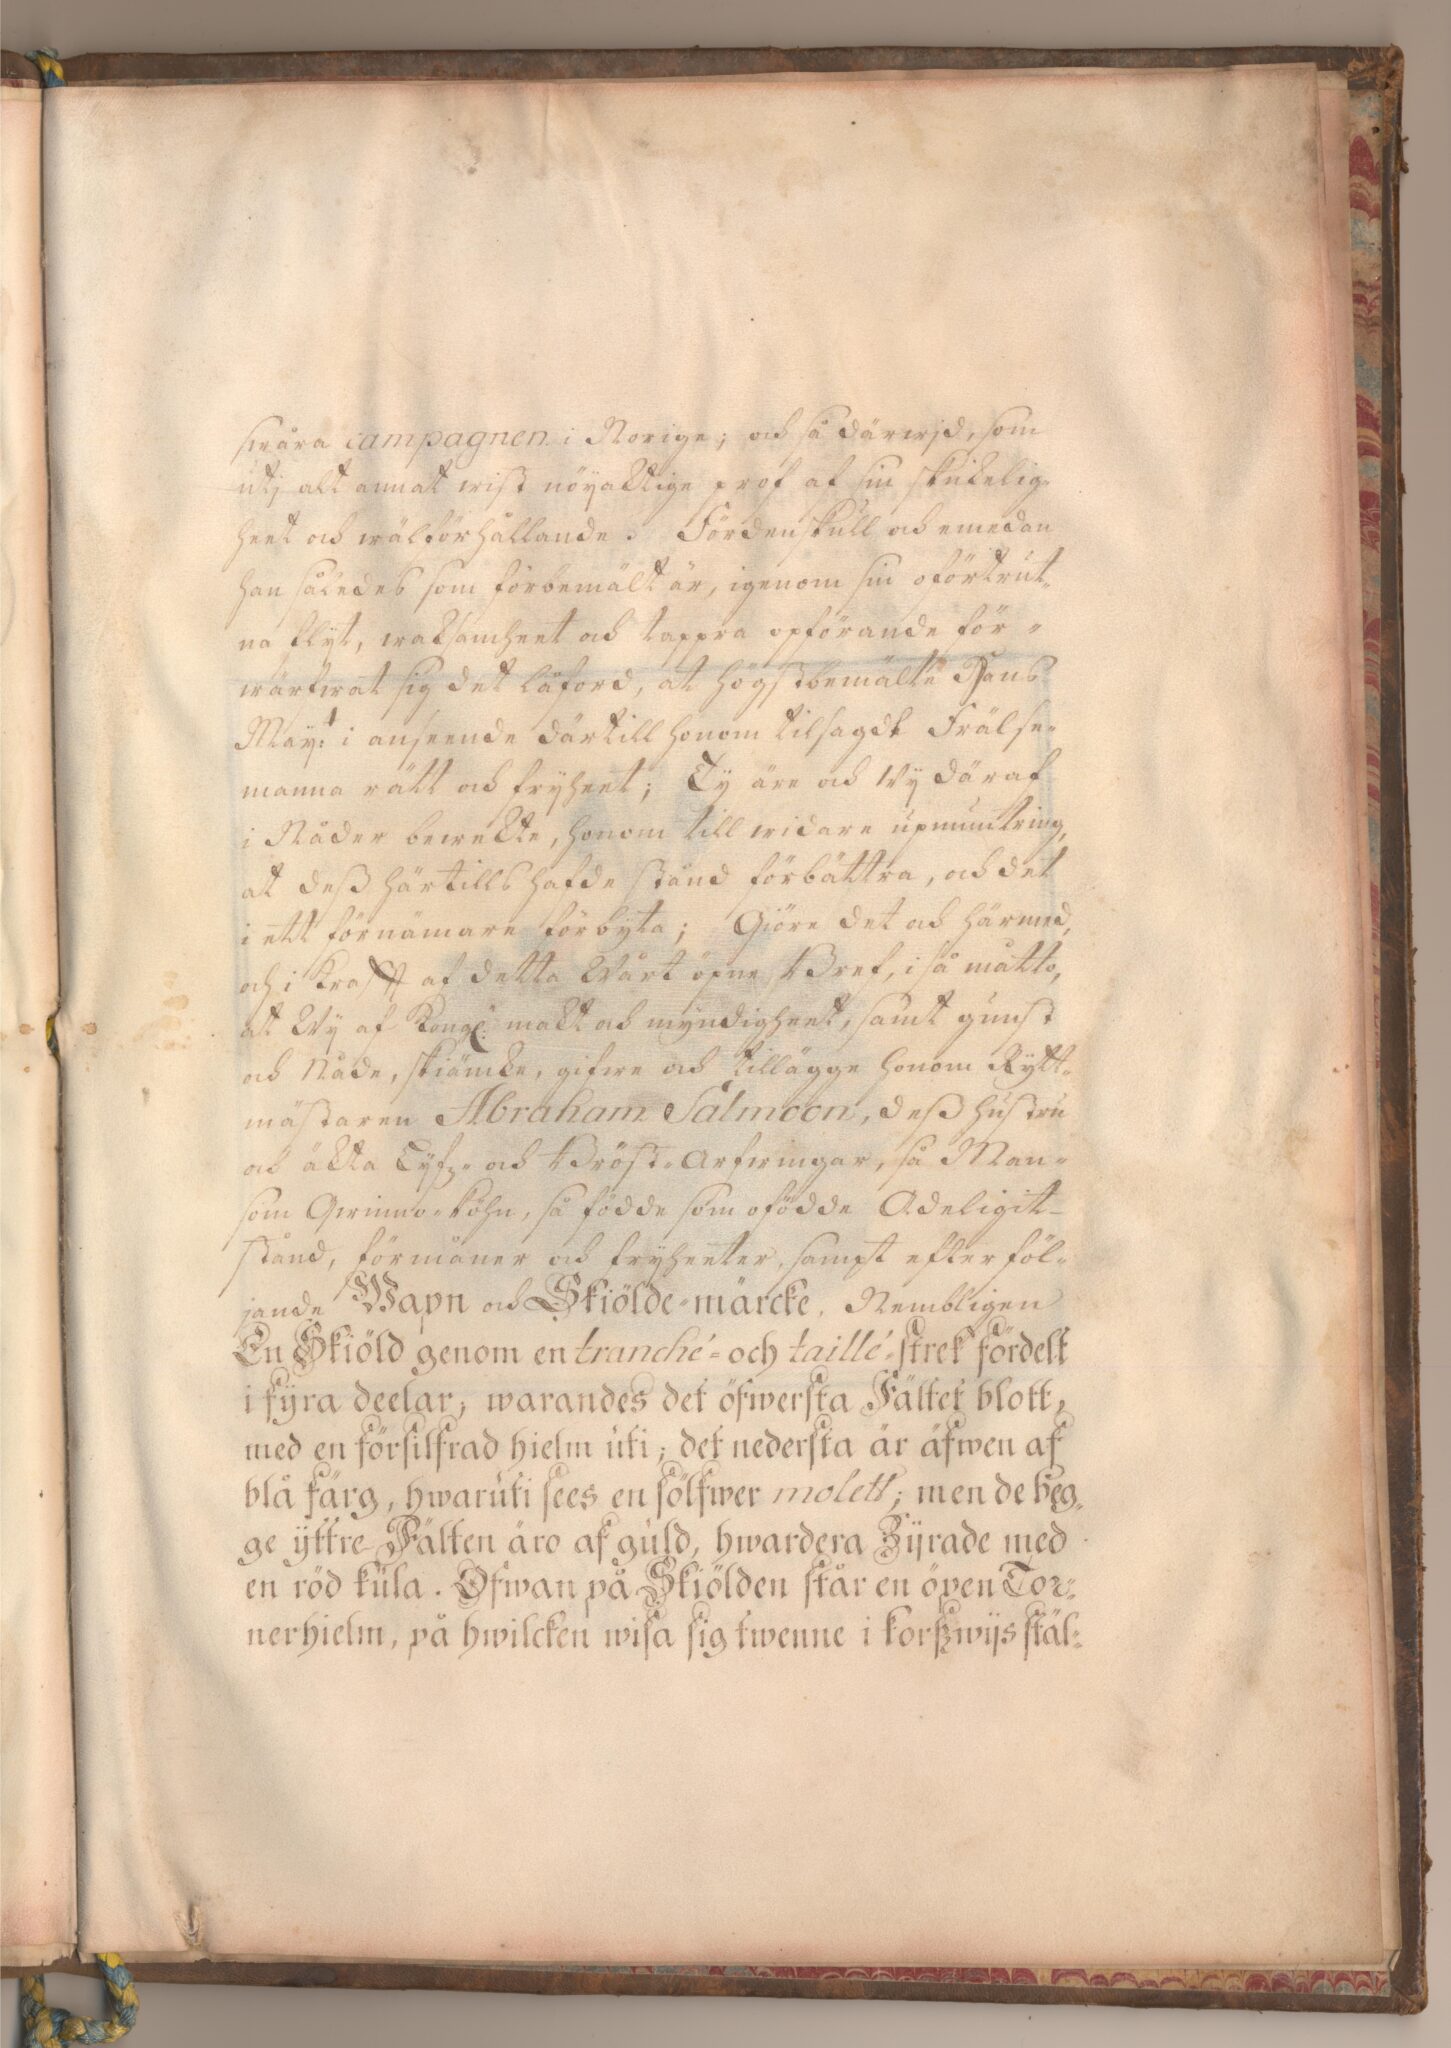 swåra campagnen i Norige; och så därwid, som
utj alt annat wist nöyachtige prof af sin skickelig-
heet och wälförhållande. Fördenskull och emedan
han således som förbemält är, igenom sin oförtrut-
na flyt, waksamheet och tappra opförande för-
wärfwat sig det låford, at högstbemälte Hans
Mayt: i anseende därtill honom tilsagdt Frälse-
manna rätt och fryheet; Ty äre och Wy däraf
i Nåder bewekte, honom till widare upmuntring,
at deß härtills hafde stånd förbättra, och det
i ett förnämare förbyta; Giöre det och härmed,
och i Krafft af detta Wårt öpne Bref, i så måtto,
at Wy af Kongl: macht och myndigheet, samt gunst
och Nåde, skiäncke, gifwe och tillägge honom Rytt-
mästaren Abraham Salmoon, deß hustru
och ächta Lyfz- och Bröst-Arfwingar, så Man-
som Qwinno-köhn, så födde som ofödde Adeligit-
stånd, förmåner och fryheeter, sampt efterföl-
jande Wapn och Skiölde-märcke. Nembligen
En Skiöld genom en tranché- och taillé-strek fördelt
i fyra deelar; warandes det öfwersta Fältet blott,
med en försilfrad hielm uti; det nedersta är äfwen af
blå färg, hwaruti sees en sölfwer molett; men de beg-
ge yttre Fälten äro af guld, hwardera Zijrade med
en röd kula. Ofwan på Skiölden står en öpen Tor-
nerhielm, på hwilcken wisa sig twenne i korßwijs stäl-